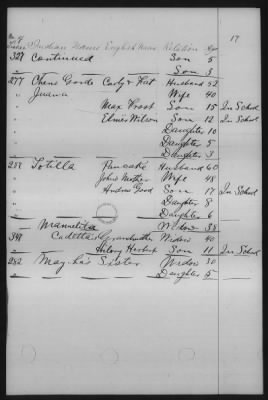 17
No of Indian Name English Name Relation Age
327 Continued Son 5
" Son 3
277 Chene Goode Curly Hat Husband 52
" Juana Wife 40
" Max Frost Son 15 In School
" Elmer Wilson Son 12 In School
" Daughter 10
" Daughter 5
" Daughter 3
287 Totilla Husband 60
" John Mother Wife 48
" Andrew Good Son 17 In School
" Daughter 8
" Daughter 6
" Widow 38
348 Cadetta Grandmother Widow 40
" Antony Herbert Son 11 In School
282 Sister Widow 30
" Daughter 5